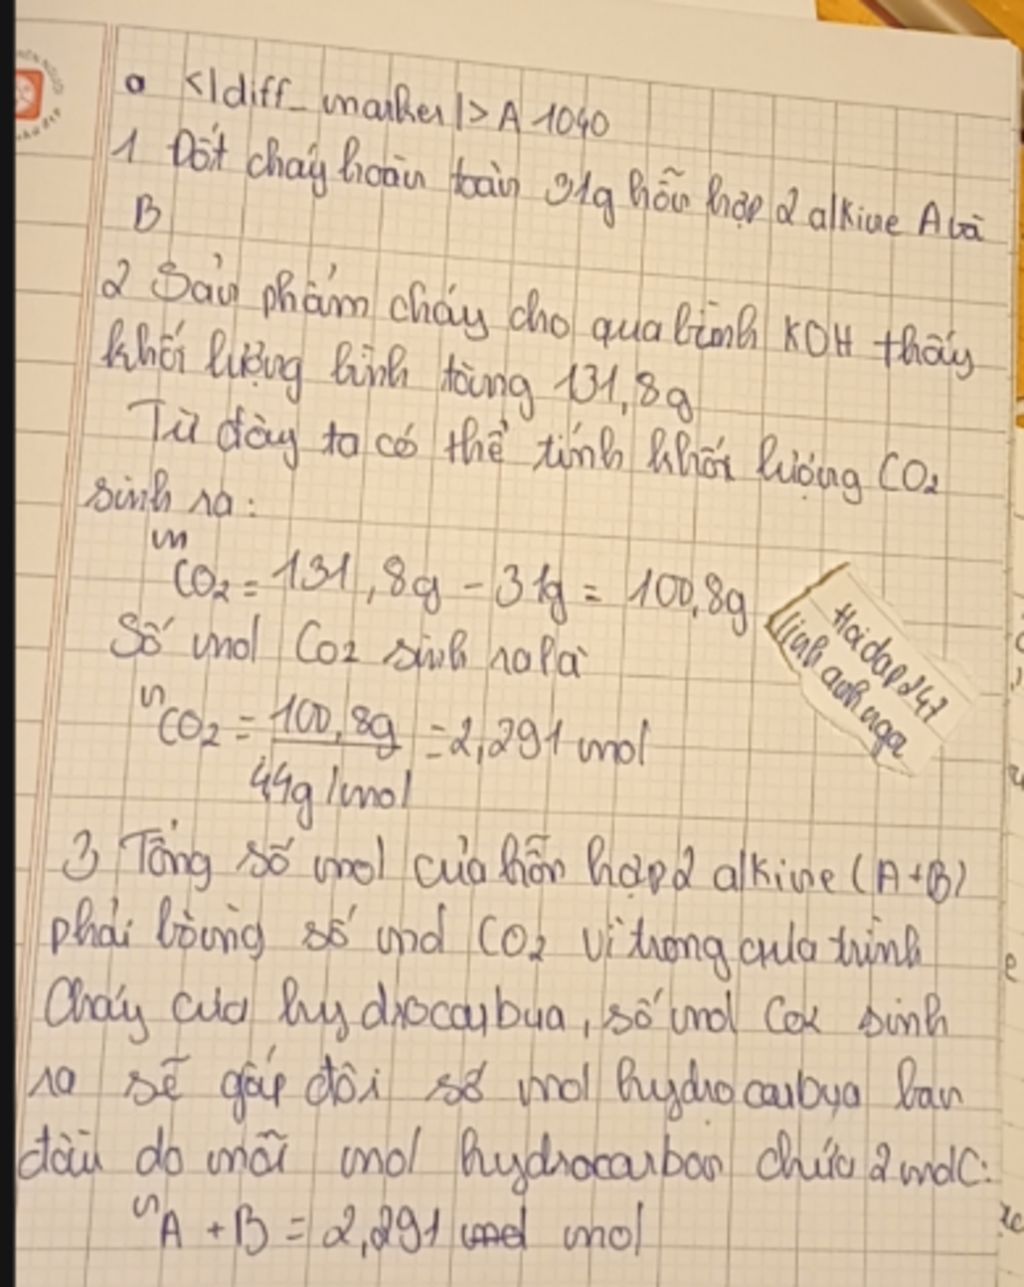 o <|diff_marker|> A 1040
1 Đốt cháy hoàn toàn 31g hỗn hợp 2 alkine A và
B
2 Sản phẩm cháy cho qua bình KOH thấy
khối lượng bình tăng 131,8g
Từ đây ta có thể tính khối lượng CO2
sinh ra:
mCO2 = 131,8g - 31g = 100,8g
Số mol CO2 sinh ra là
nCO2 = 100,8g / 44g/mol = 2,291 mol
Hoidap247
linhanhnga
3 Tổng số mol của hỗn hợp 2 alkine (A+B)
phải bằng số mol CO2 vì trong quá trình
cháy của hydrocacbua, số mol CO2 sinh
ra sẽ gấp đôi số mol hydrocacbua ban
đầu do mỗi mol hydrocarbon chứa 2 mol C:
nA + B = 2,291 mol